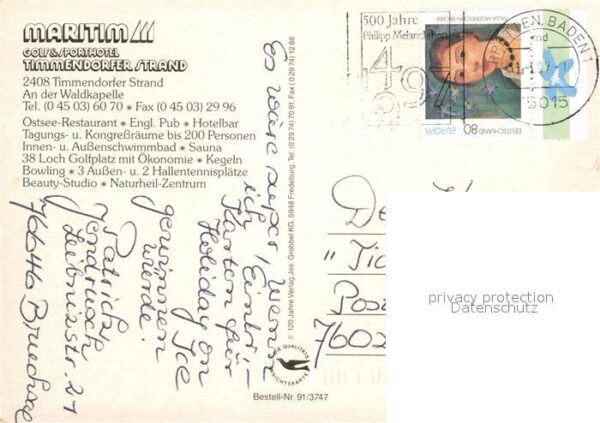 MARITIM
GOLF & SPORTHOTEL
TIMMENDORFER STRAND
2408 Timmendorfer Strand
An der Waldkapelle
Tel. (0 45 03) 60 70 * Fax (0 45 03) 2 29 96
Ostsee-Restaurant * Engl. Pub * Hotelbar
Tagungs- u. Kongreßräume bis 200 Personen
Innen- u. Außenschwimmbad * Sauna
38 Loch Golfplatz mit Ökonomie * Kegeln
Bowling * 3 Außen- u. 2 Hallentennisplätze
Beauty-Studio * Naturheil-Zentrum
es wäre super, wenn
ich Eintritts-
Karten für
Holiday on
Ice
gewinnen
würde.
Patrick
Jendrusch
Leibnizstr. 21
76646 Bruchsal
© 120 Jahre Verlag Jos. Grobbel KG, 5948 Fredeburg, Tel. (0 29 74) 70 91 Fax (0 29 74) 12 86
DIE QUALITÄTS
ANSICHTSKARTE
Bestell-Nr. 91/3747
500 Jahre
Philipp Melanchthon
1497
PAULA MODERSOHN-BECKER
EUROPA
DEUTSCHLAND
80
BADEN-BADEN 1
"Tic
Pos
7602
privacy protection
Datenschutz